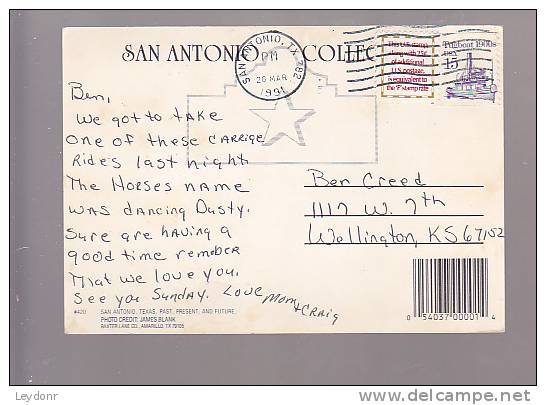 SAN ANTONIO COLLEC
SAN ANTONIO, TX 782
PM
26 MAR
1991
This U.S. stamp,
along with 25¢
of additional
U.S. postage,
is equivalent to
the 'F' stamp rate
Tugboat 1900s
USA
15
Ben,
We got to take
one of these carrige
rides last night
The Horses name
was dancing Dusty.
Sure are having a
good time remember
That we love you.
See you Sunday. Love Mom & Craig
Ben Creed
1117 W. 7th
Wellington, KS 67152
#420 SAN ANTONIO, TEXAS, PAST, PRESENT, AND FUTURE.
PHOTO CREDIT: JAMES BLANK
BAXTER LANE CO., AMARILLO, TX 79105
0 54037 00001 4
Leydonr
delcampe.net